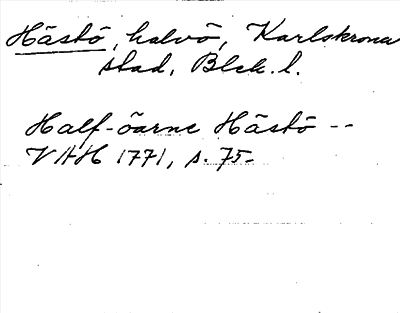 Hästö, halvö, Karlskrona
stad, Blek. l.
Half-öarne Hästö --
VAH 1771, s. 75-